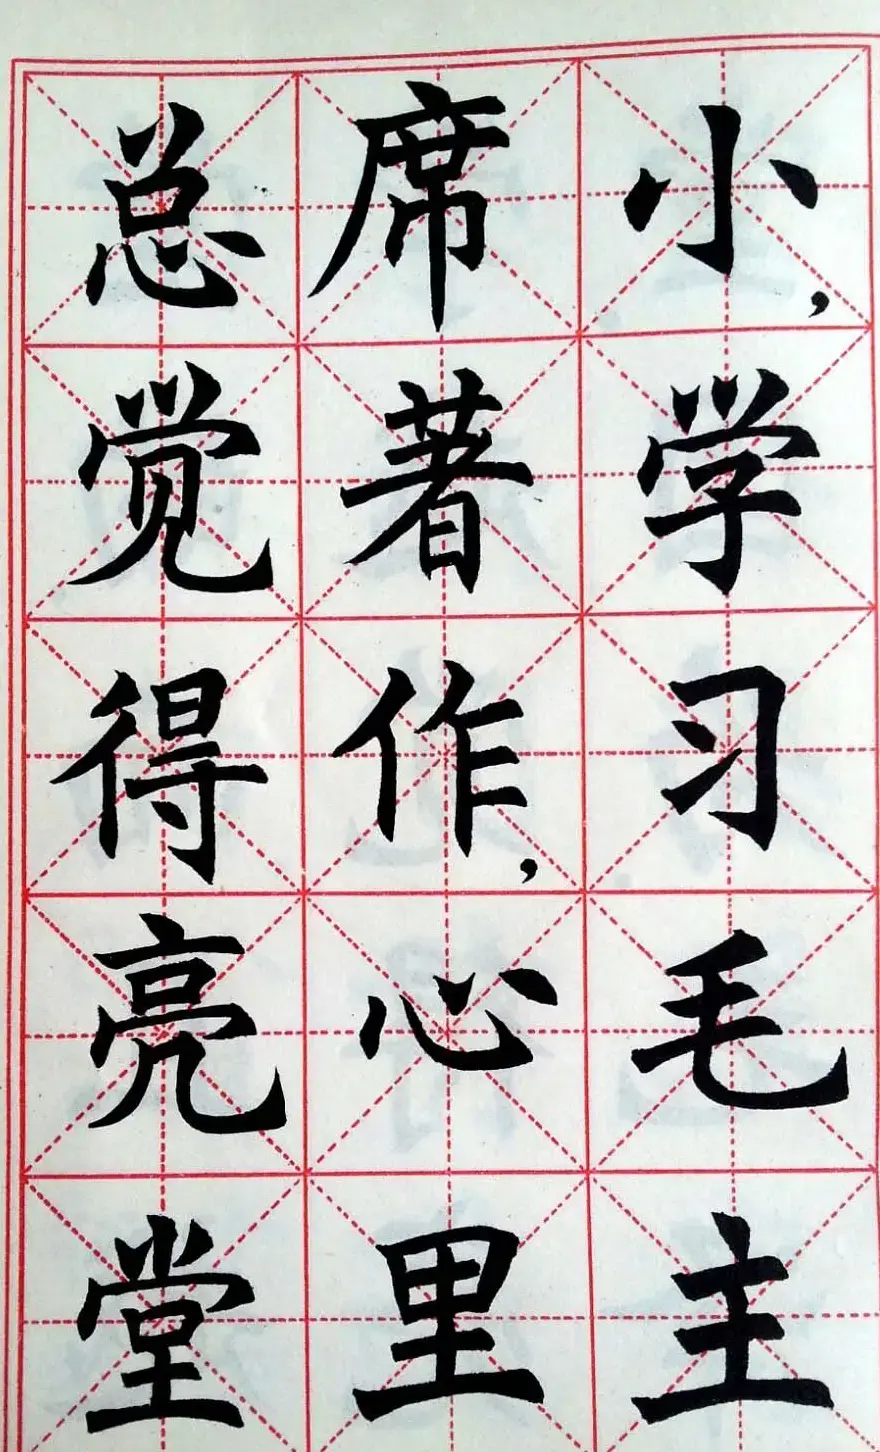 小，学习毛主
席著作，心里
总觉得亮堂